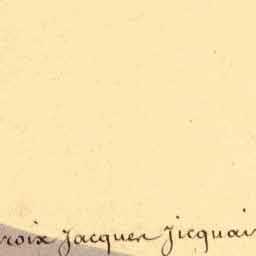 roix Jacquen Jicquai